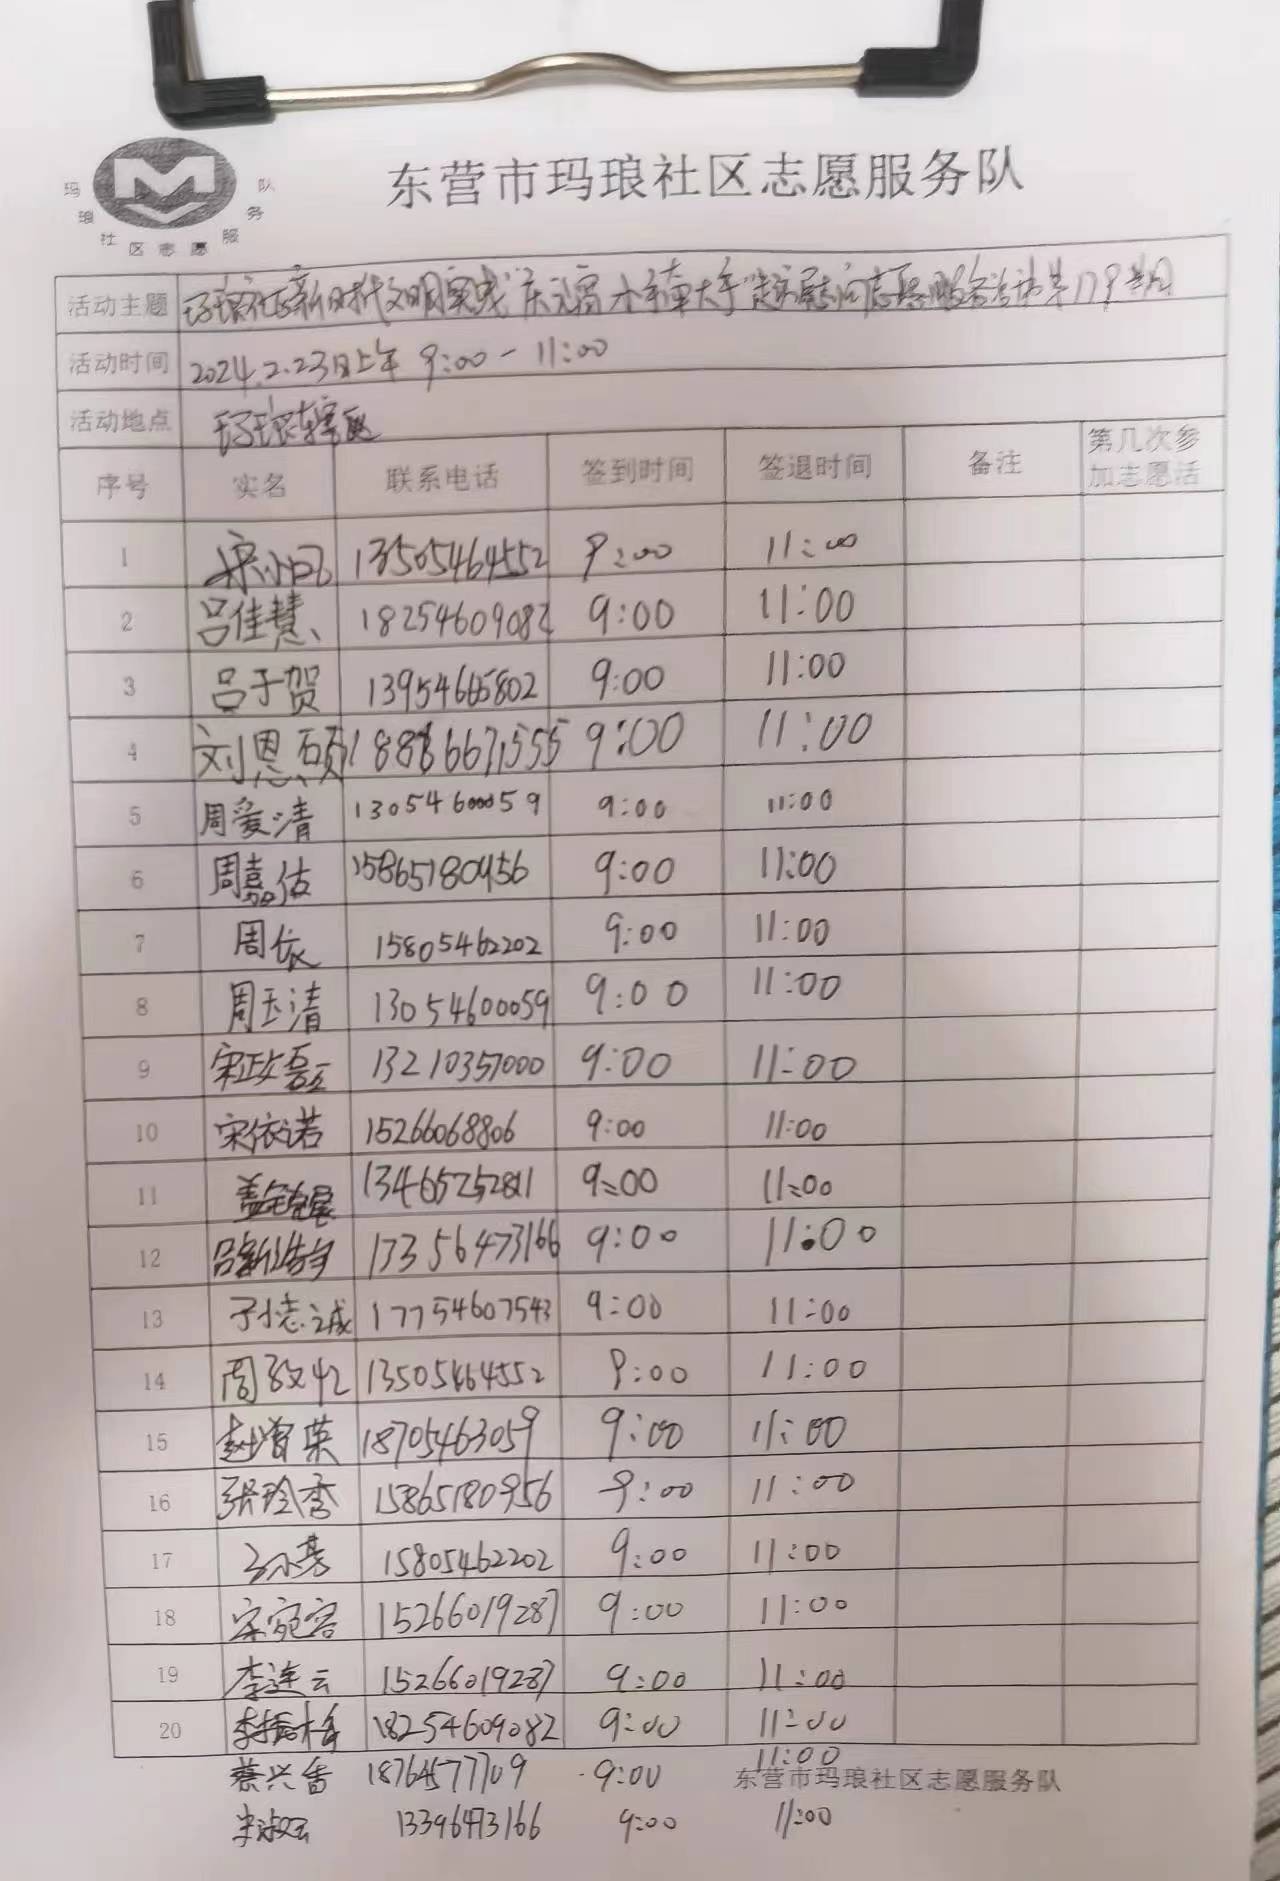 东营市玛琅社区志愿服务队
玛琅社区志愿服务队
活动主题 玛琅社区新时代文明实践"庆元宵 小手牵大手"走访慰问志愿服务活动第179期
活动时间 2024.2.23日上午 9:00-11:00
活动地点 玛琅辖区
序号 实名 联系电话 签到时间 签退时间 备注 第几次参加志愿活
1 13505464552 9:00 11:00
2 吕佳慧 18254609082 9:00 11:00
3 吕于贺 13954665802 9:00 11:00
4 刘恩硕 18886671555 9:00 11:00
5 周爱清 13054600059 9:00 11:00
6 周嘉佑 15865180956 9:00 11:00
7 周依 15805462202 9:00 11:00
8 周玉清 13054600059 9:00 11:00
9 宋政磊 13210357000 9:00 11:00
10 宋依诺 15266068806 9:00 11:00
11 盖 9:00 11:00
12 吕 17356473166 9:00 11:00
13 孙志诚 17754607543 9:00 11:00
14 周 13505464552 9:00 11:00
15 赵增荣 18705463059 9:00 11:00
16 张玲香 15865180956 9:00 11:00
17 15805462202 9:00 11:00
18 宋宛容 15266019287 9:00 11:00
19 李连云 15266019287 9:00 11:00
20 李 18254609082 9:00 11:00
蔡兴香 18764577709 9:00 11:00
东营市玛琅社区志愿服务队
13396473166 9:00 11:00